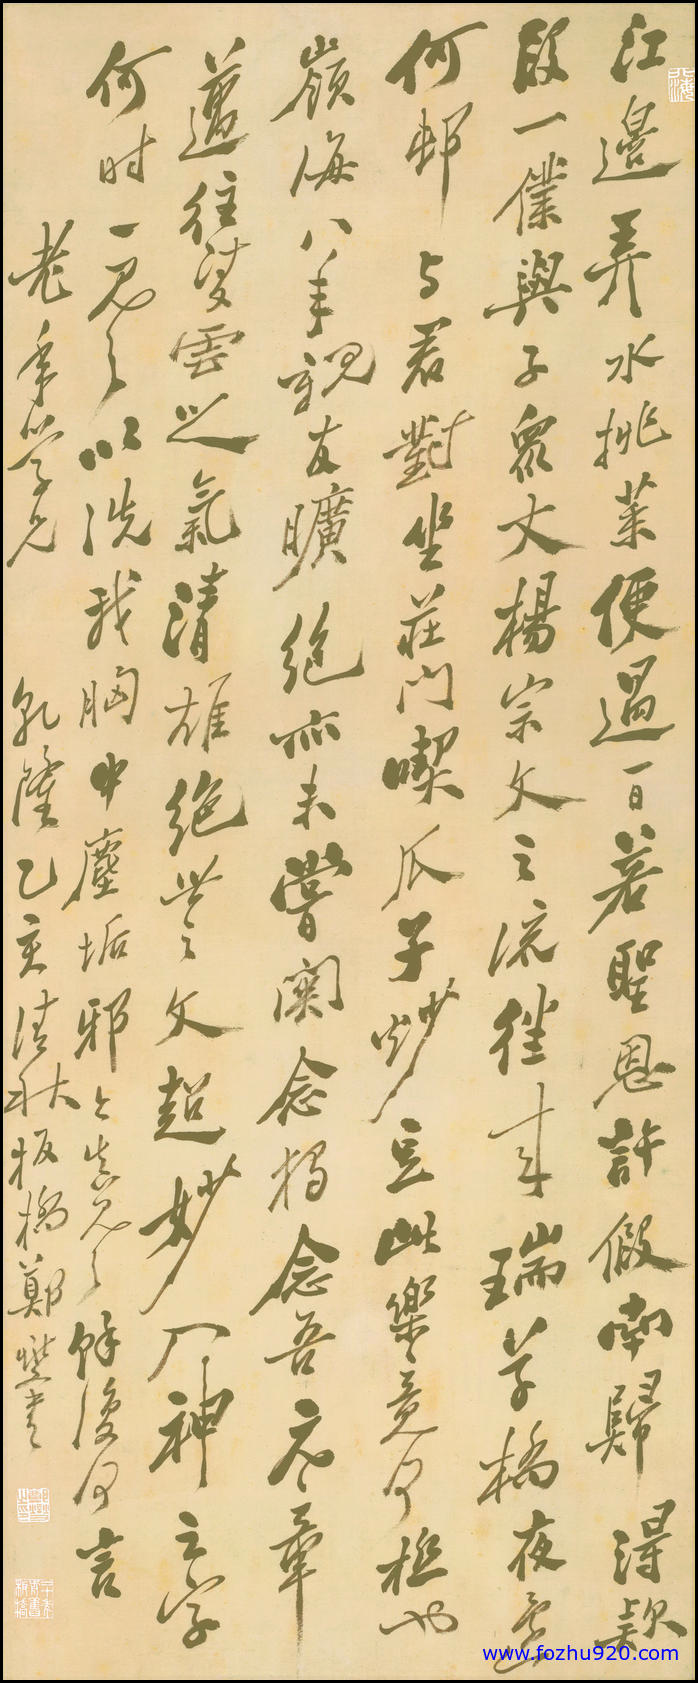 江邊弄水挑菜便過一日若聖恩許假南歸得款
段一僕與子眾丈楊宗文之流往來瑞草橋夜還
何邨与君對坐莊門喫瓜子炒豆此樂竟何極也
嶺海八年親友曠絕亦未嘗闗念獨念吾元章
邁往凌雲之氣清雄絕世之文超妙入神之字
何时一見之以洗我胸中塵垢邪今真見之餘復何言
老年學兄 乾隆乙亥清秋板橋鄭燮書
www.fozhu920.com